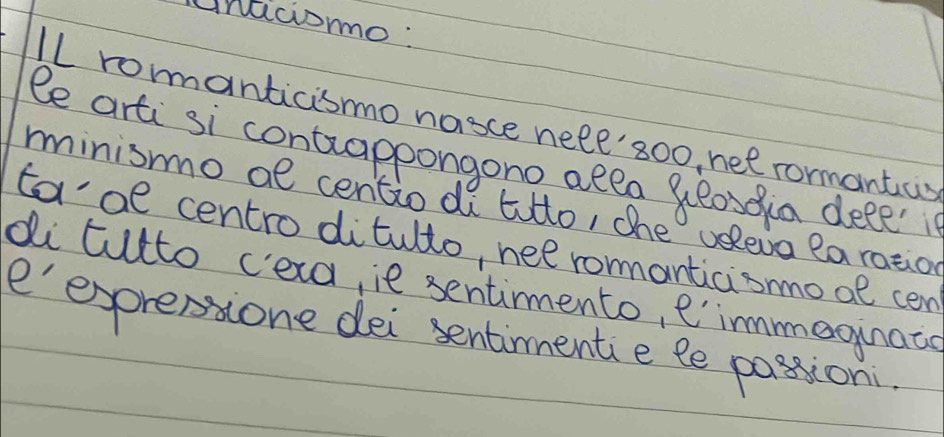 anticismo:
IL romanticismo nasce nell'800, nel romanticis
le arti si contrappongono alla filosofia dell' il
minismo al centro di tutto, che voleva la razion
ta' al centro di tutto, nel romanticismo al cen
di tutto c'era, il sentimento, l'immaginazio
l'espressione dei sentimenti e le passioni.